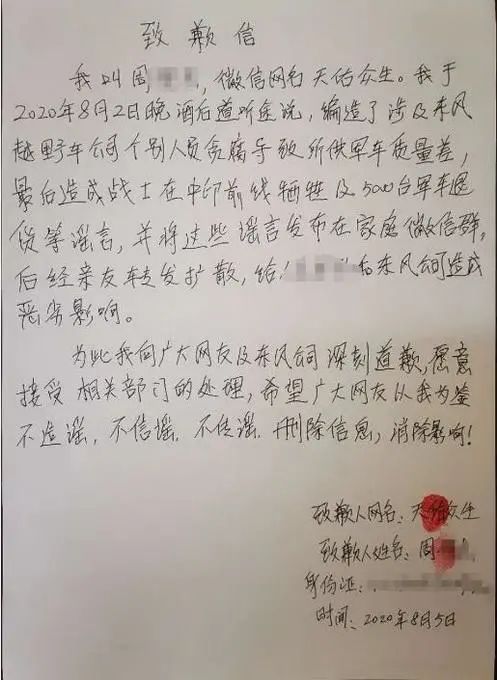 致歉信
我叫周，微信网名天佑众生。我于
2020年8月2日晚酒后道听途说，编造了涉及东风
越野车公司个别人员贪腐导致所供军车质量差，
最后造成战士在中印前线牺牲及5000台军车退
货等谣言，并将这些谣言发布在家庭微信群，
后经亲友转发扩散，给和东风公司造成
恶劣影响。
为此我向广大网友及东风公司深刻道歉，愿意
接受相关部门的处理，希望广大网友以我为鉴
不造谣，不信谣．不传谣．删除信息，消除影响！
致歉人网名：天佑众生
致歉人姓名：周
身份证：
时间：2020年8月5日